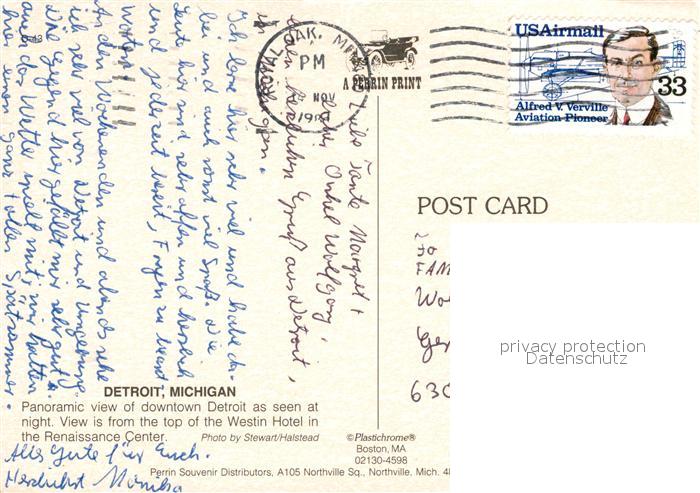 Liebe Tante Margret +
Lieber Onkel Wolfgang,
einen herzlichen Gruß aus Detroit,
in Michigan.
Ich lerne hier sehr viel und habe da-
bei und auch sonst viel Spaß. Die
Leute hier sind sehr offen und herzlich
und jederzeit bereit, Fragen zu beant
worten.
An den Wochenenden und abends sehe
ich sehr viel von Detroit und Umgebung.
Die Gegend hier gefällt mir sehr gut &
auch das Wetter spielt mit; wir hatten
hier einen ganz tollen Spätsommer.
Alles Gute für Euch.
Herzlichst Monika
ROYAL OAK,
PM
NOV
A PERRIN PRINT
USAirmail
33
Alfred V. Verville
Aviation Pioneer
POST CARD
To
FAM
Wo
Ger
630
privacy protection
Datenschutz
DETROIT, MICHIGAN
Panoramic view of downtown Detroit as seen at
night. View is from the top of the Westin Hotel in
the Renaissance Center. Photo by Stewart/Halstead
©Plastichrome®
Boston, MA
02130-4598
Perrin Souvenir Distributors, A105 Northville Sq., Northville, Mich. 4